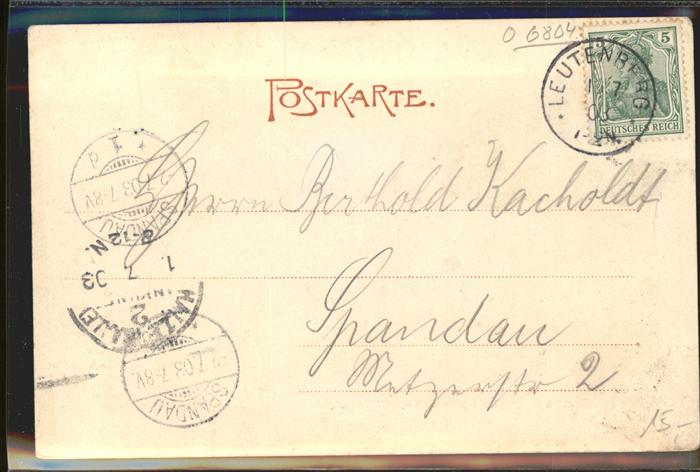 O 6804
5
DEUTSCHES REICH
LEUTENBERG
7
03
POSTKARTE.
Herrn Berthold Kacholdt
Spandau
Metzerstr 2
SPANDAU
2.7.03.7-8V.
8-12 N.
1. 7 03
2
SPANDAU
2.7.03.7-8V.
15-